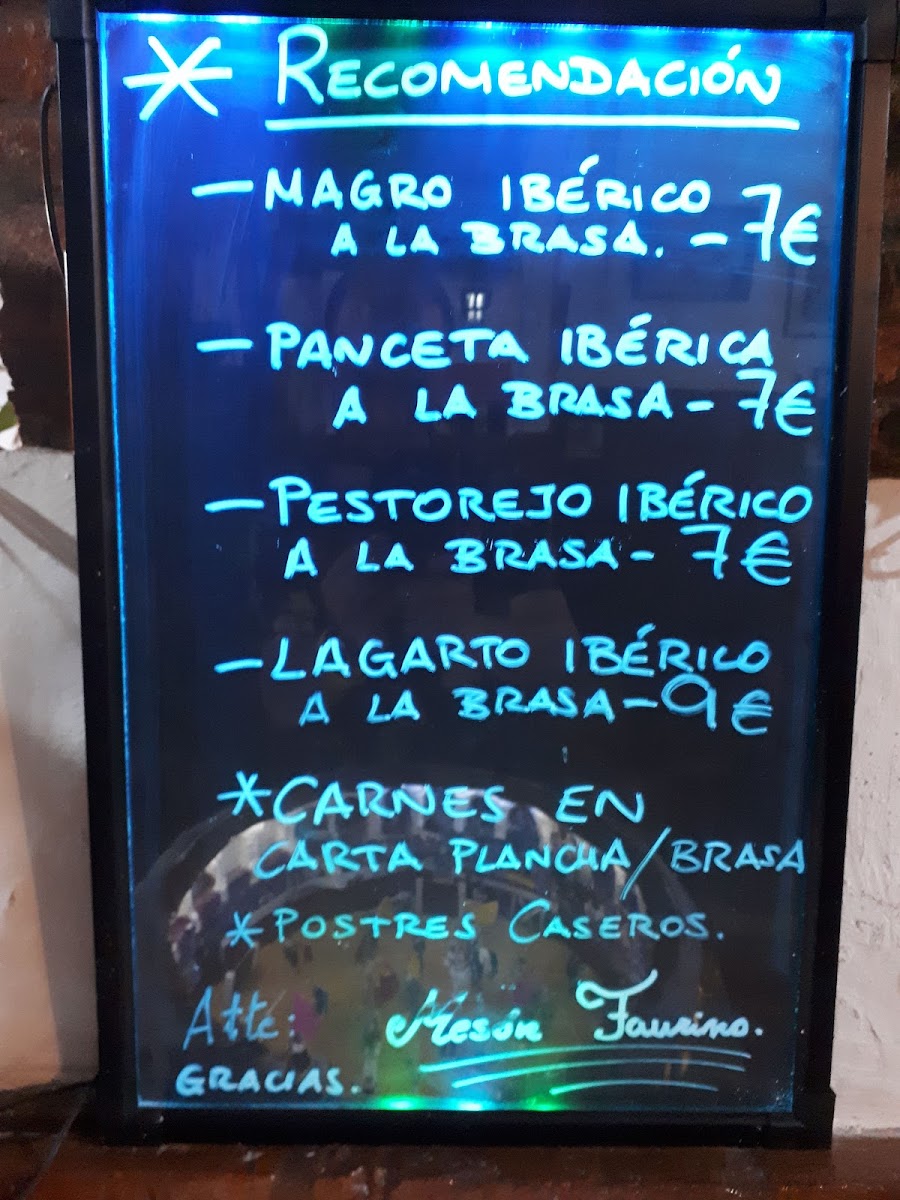 * RECOMENDACIÓN
- MAGRO IBÉRICO
A LA BRASA. - 7€
- PANCETA IBÉRICA
A LA BRASA - 7€
- PESTOREJO IBÉRICO
A LA BRASA - 7€
- LAGARTO IBÉRICO
A LA BRASA - 9€
* CARNES EN
CARTA PLANCHA/BRASA
* POSTRES CASEROS.
Atte: Mesón Taurino.
GRACIAS.